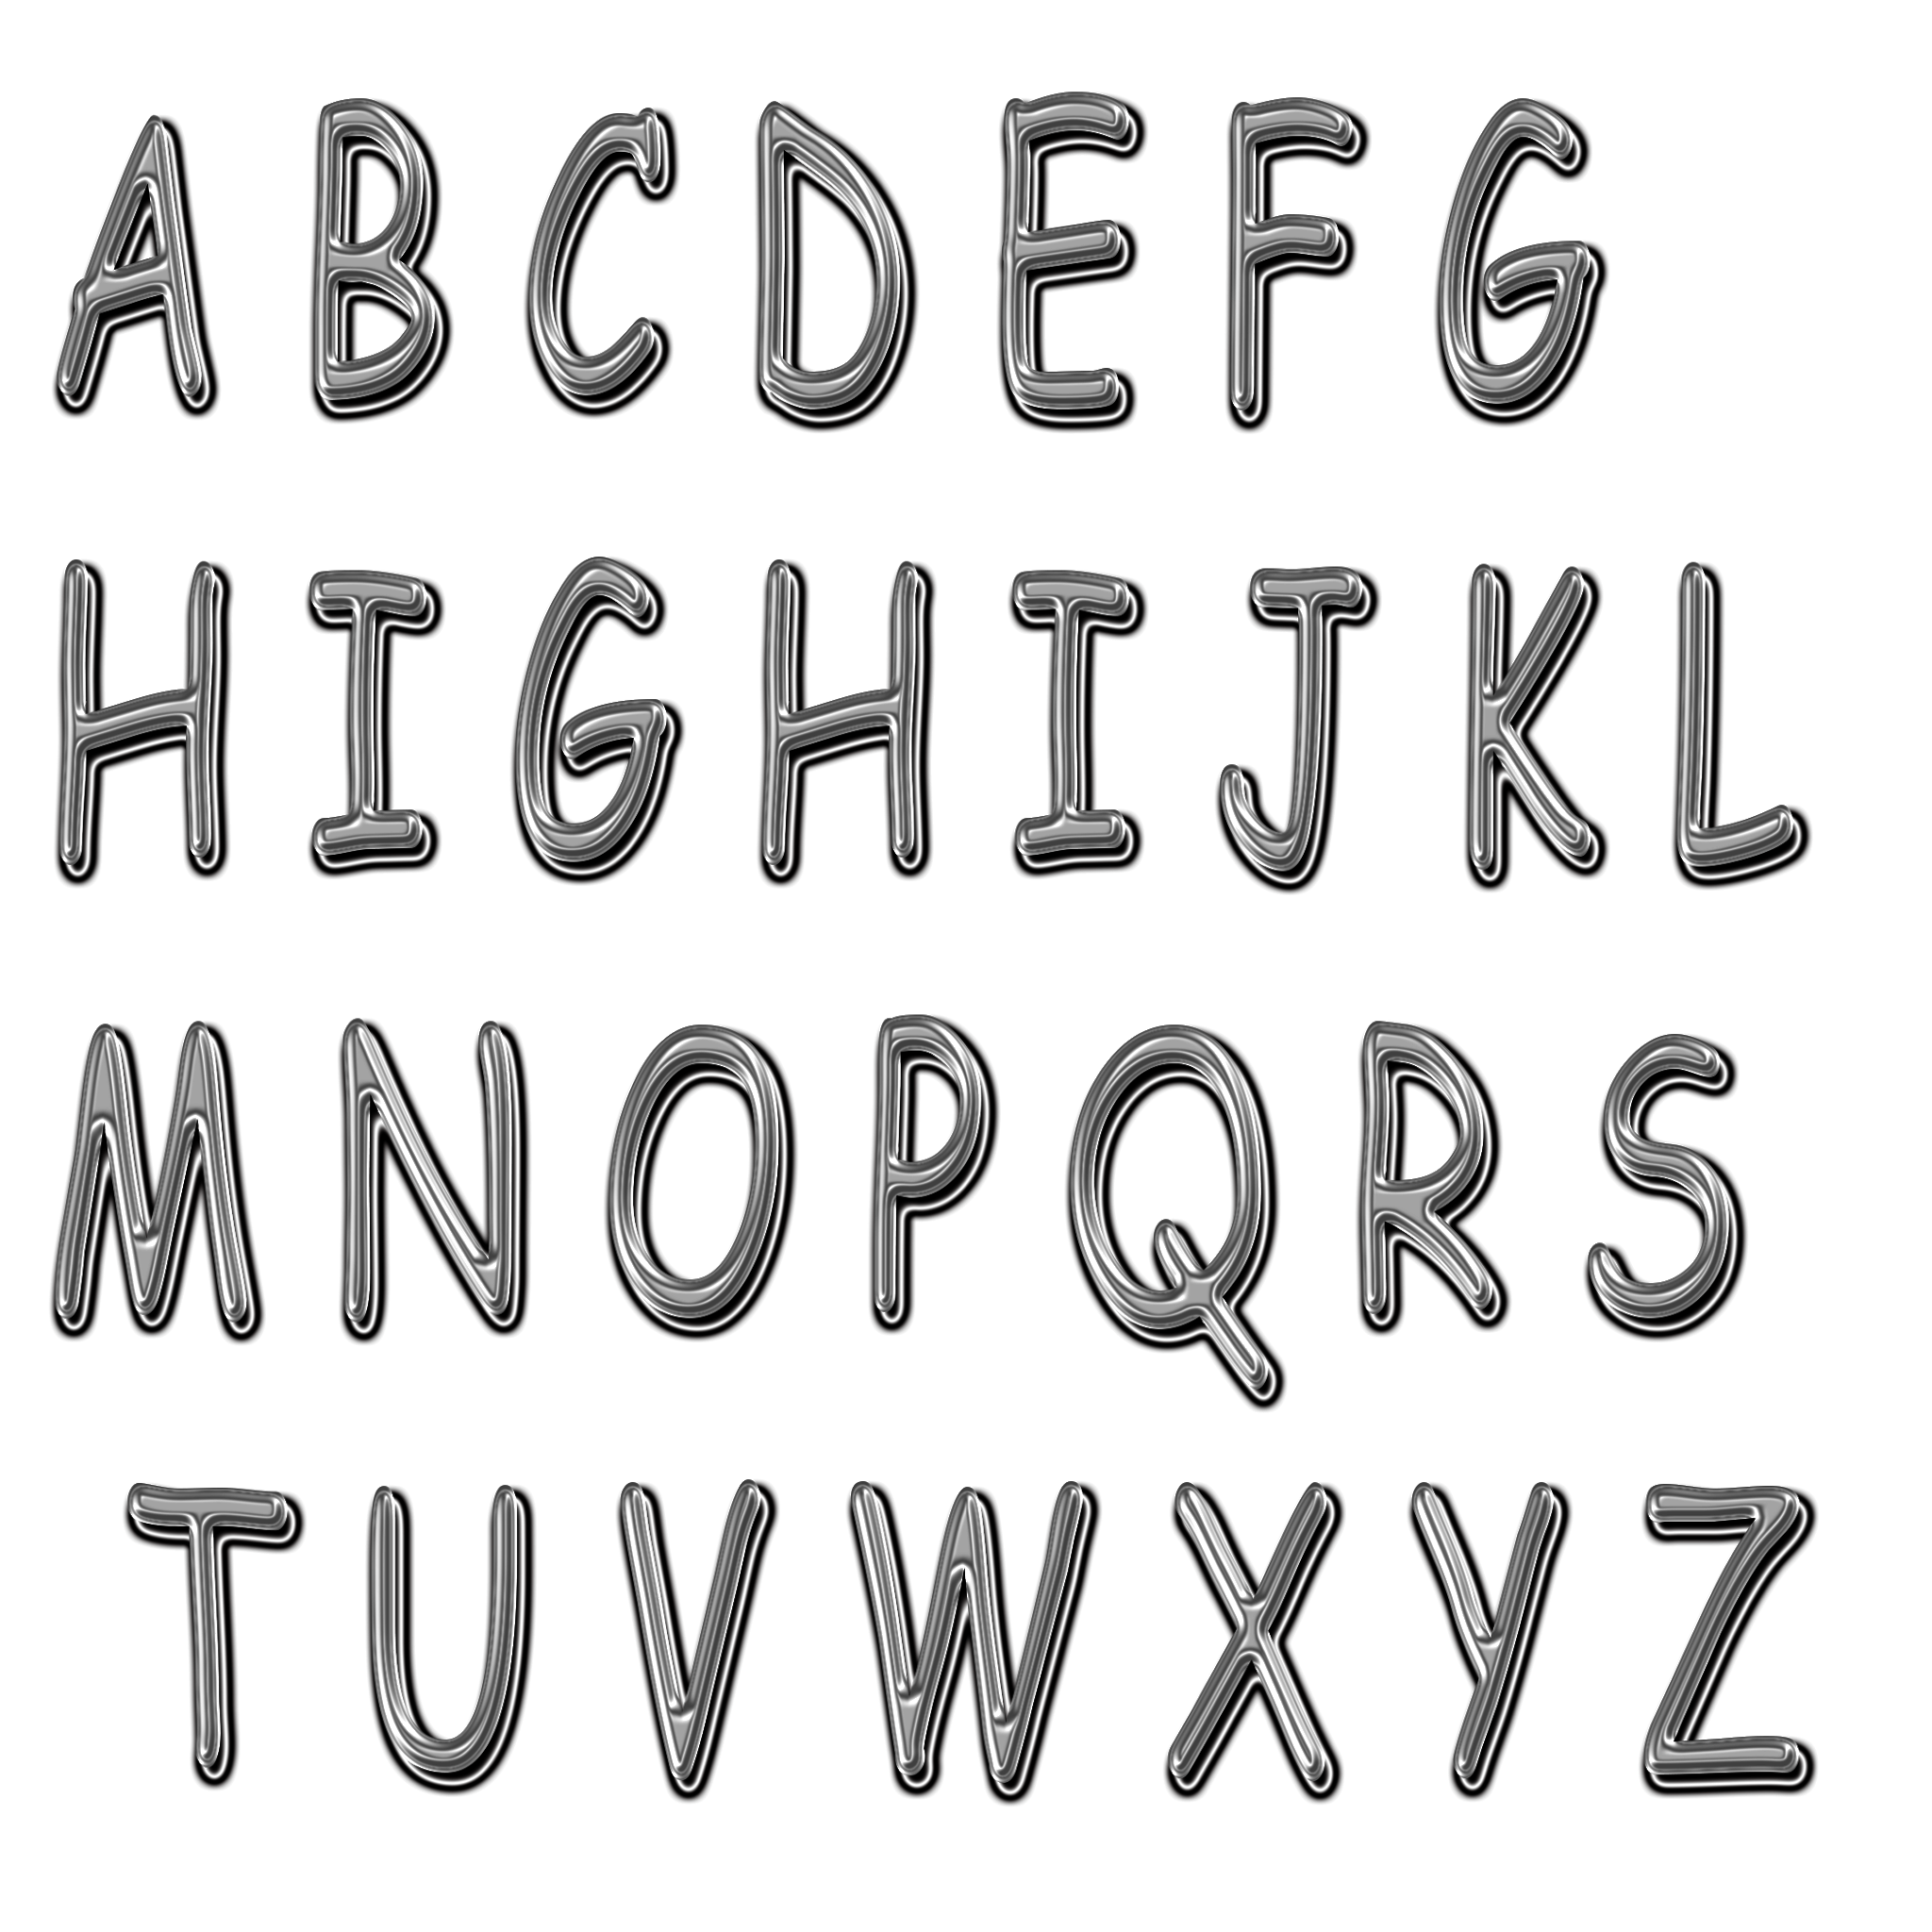 A B C D E F G
H I G H I J K L
M N O P Q R S
T U V W X Y Z